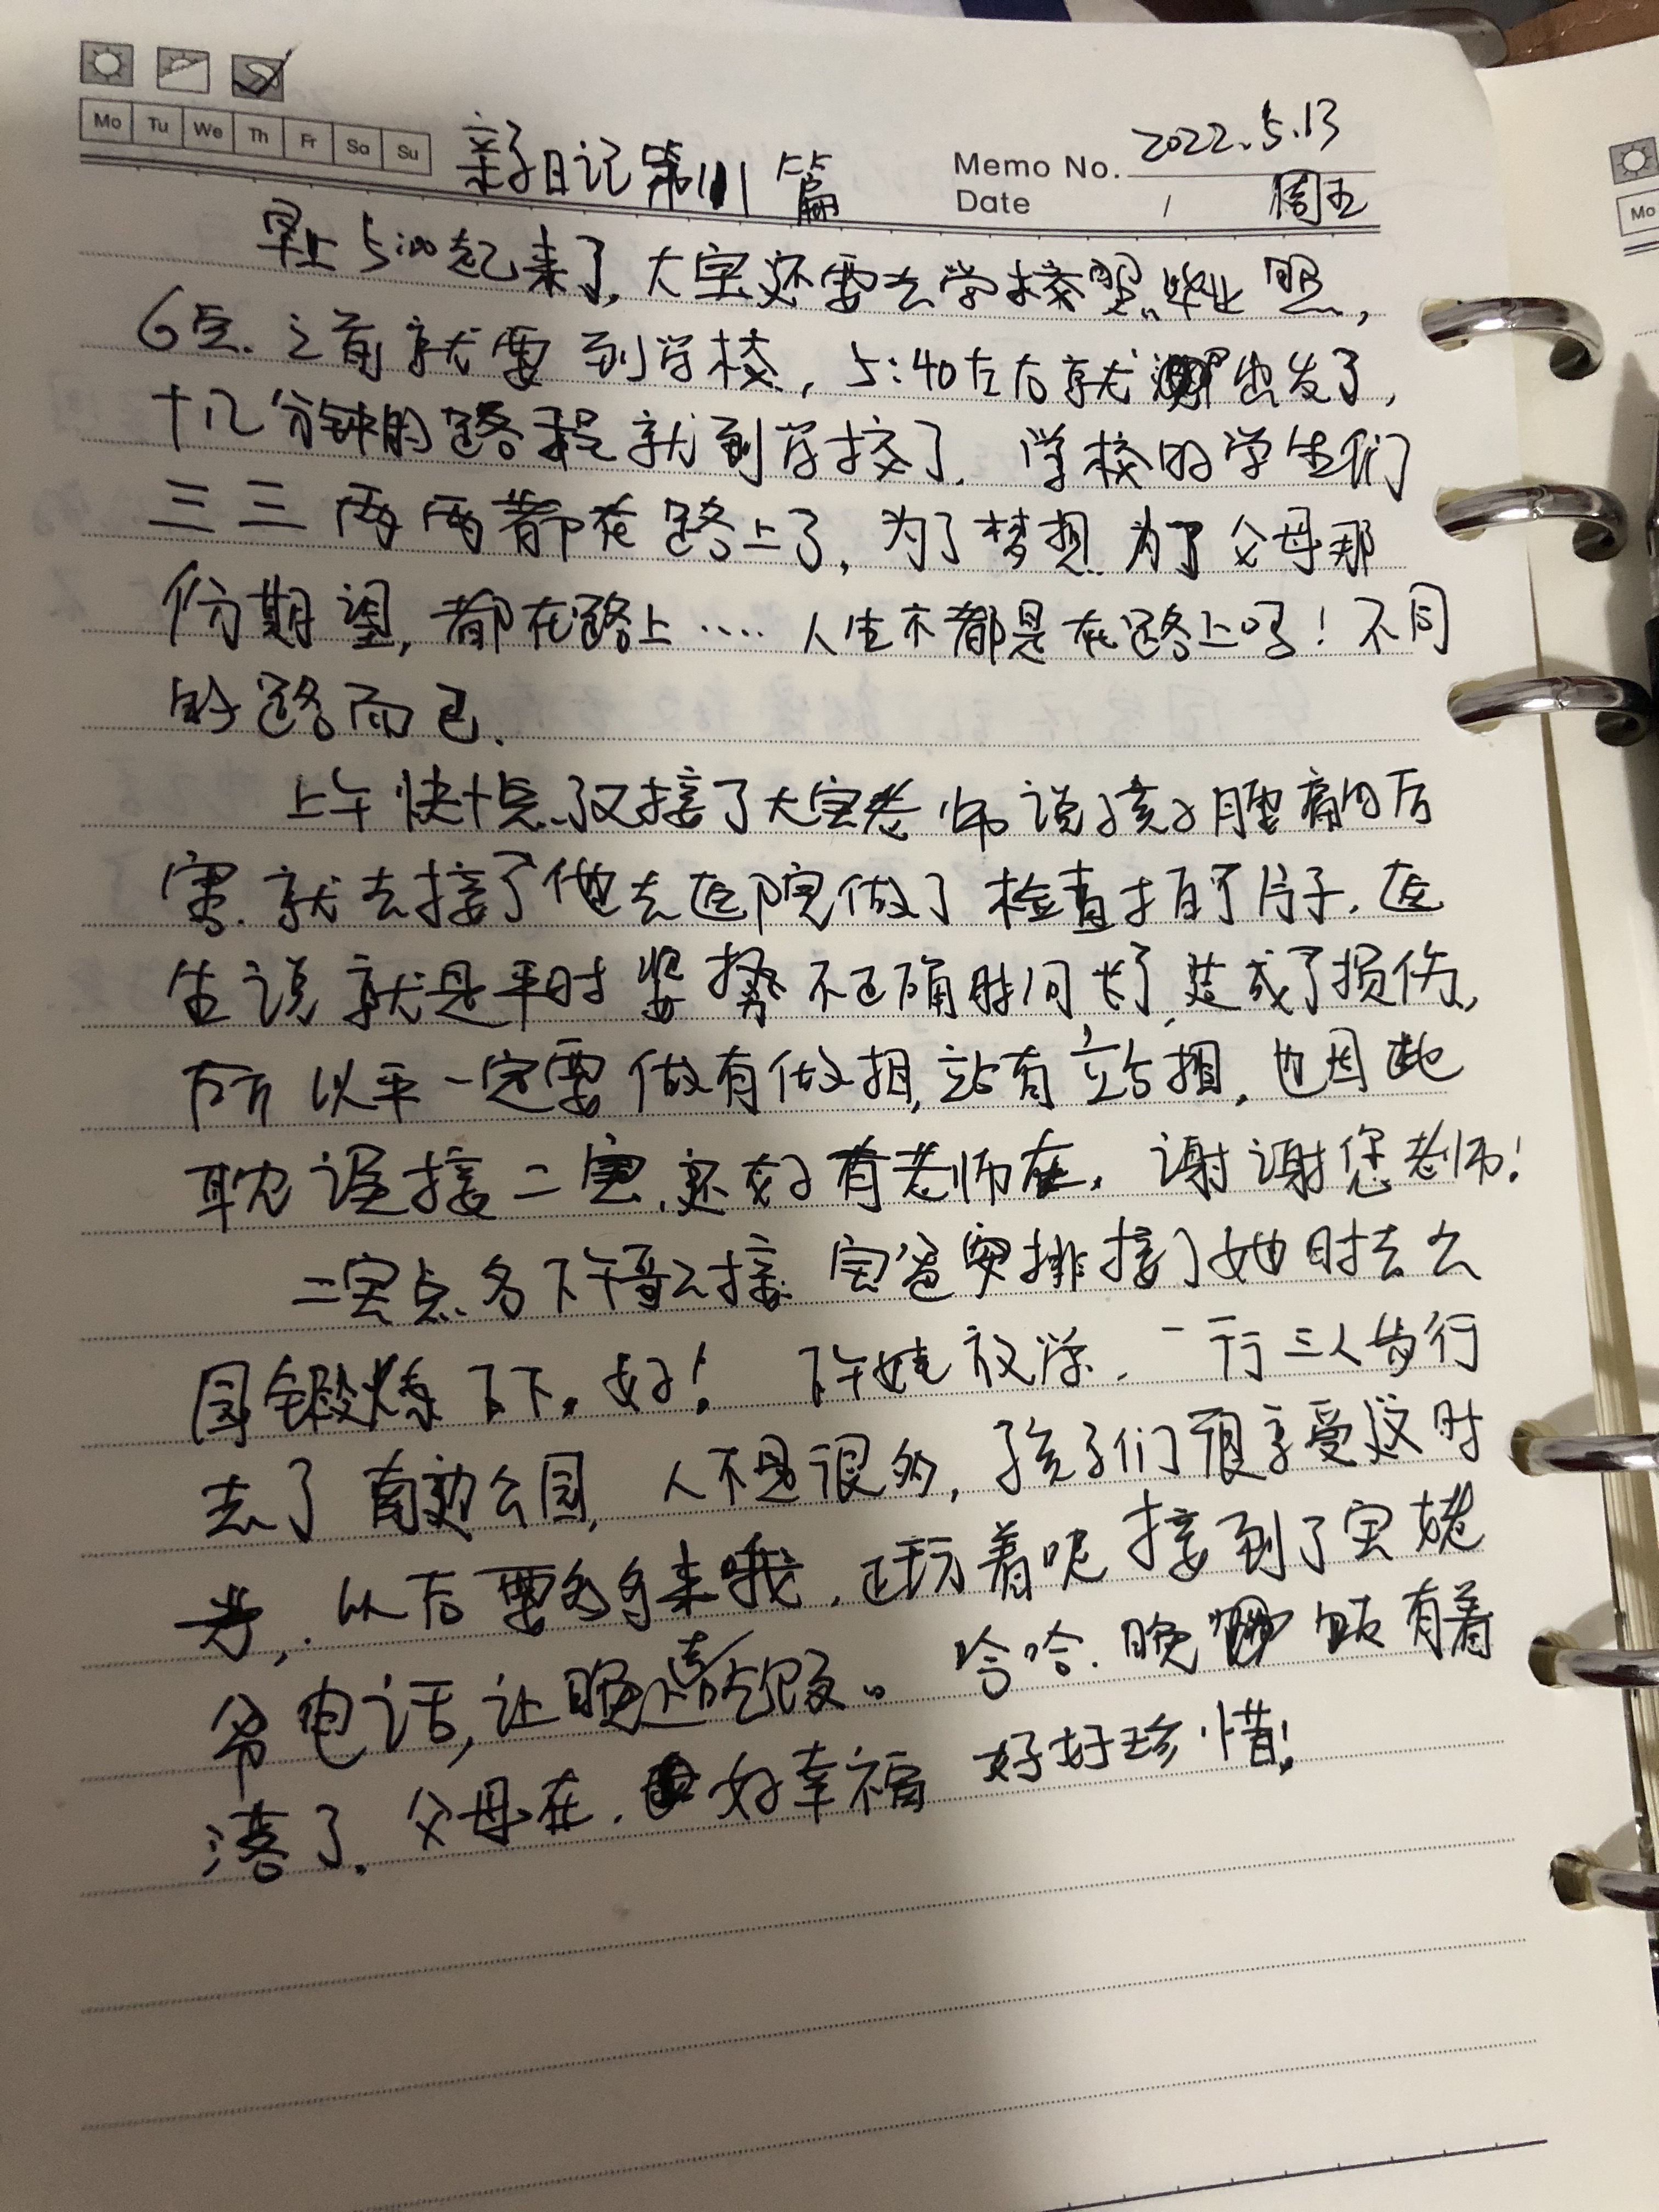 Mo Tu We Th Fr Sa Su
亲子日记第111篇
Memo No. 2022.5.13
Date / 周五
早上5:00起来了,大宝还要去学校照毕业照,
6点之前就要到学校,5:40左右就出发了,
十几分钟的路程就到学校了.学校的学生们
三三两两都在路上了,为了梦想为了父母那
份期望,都在路上····人生不都是在路上吗!不同
的路而已.
上午快十点了又接了大宝老师说孩子腰痛的历
害.就去接了他去医院做了检查拍了片子.医
生说就是平时姿势不正确时间长了造成了损伤,
所以平一定要做有做相,站有站相,也因此
耽误接二宝,还好有老师在,谢谢您老师!
二宝点名下午哥去接.宝爸安排接了她时去公
园锻炼下下。好!下午娃放学.一行三人步行
去了南边公园,人不是很多,孩子们很享受这时
光,.以后要多多来哦.正玩着呢接到了宝姥
爷电话,让晚造吃饭。哈哈.晚饭有着
落了.父母在.好幸福 好好珍惜!
Mo